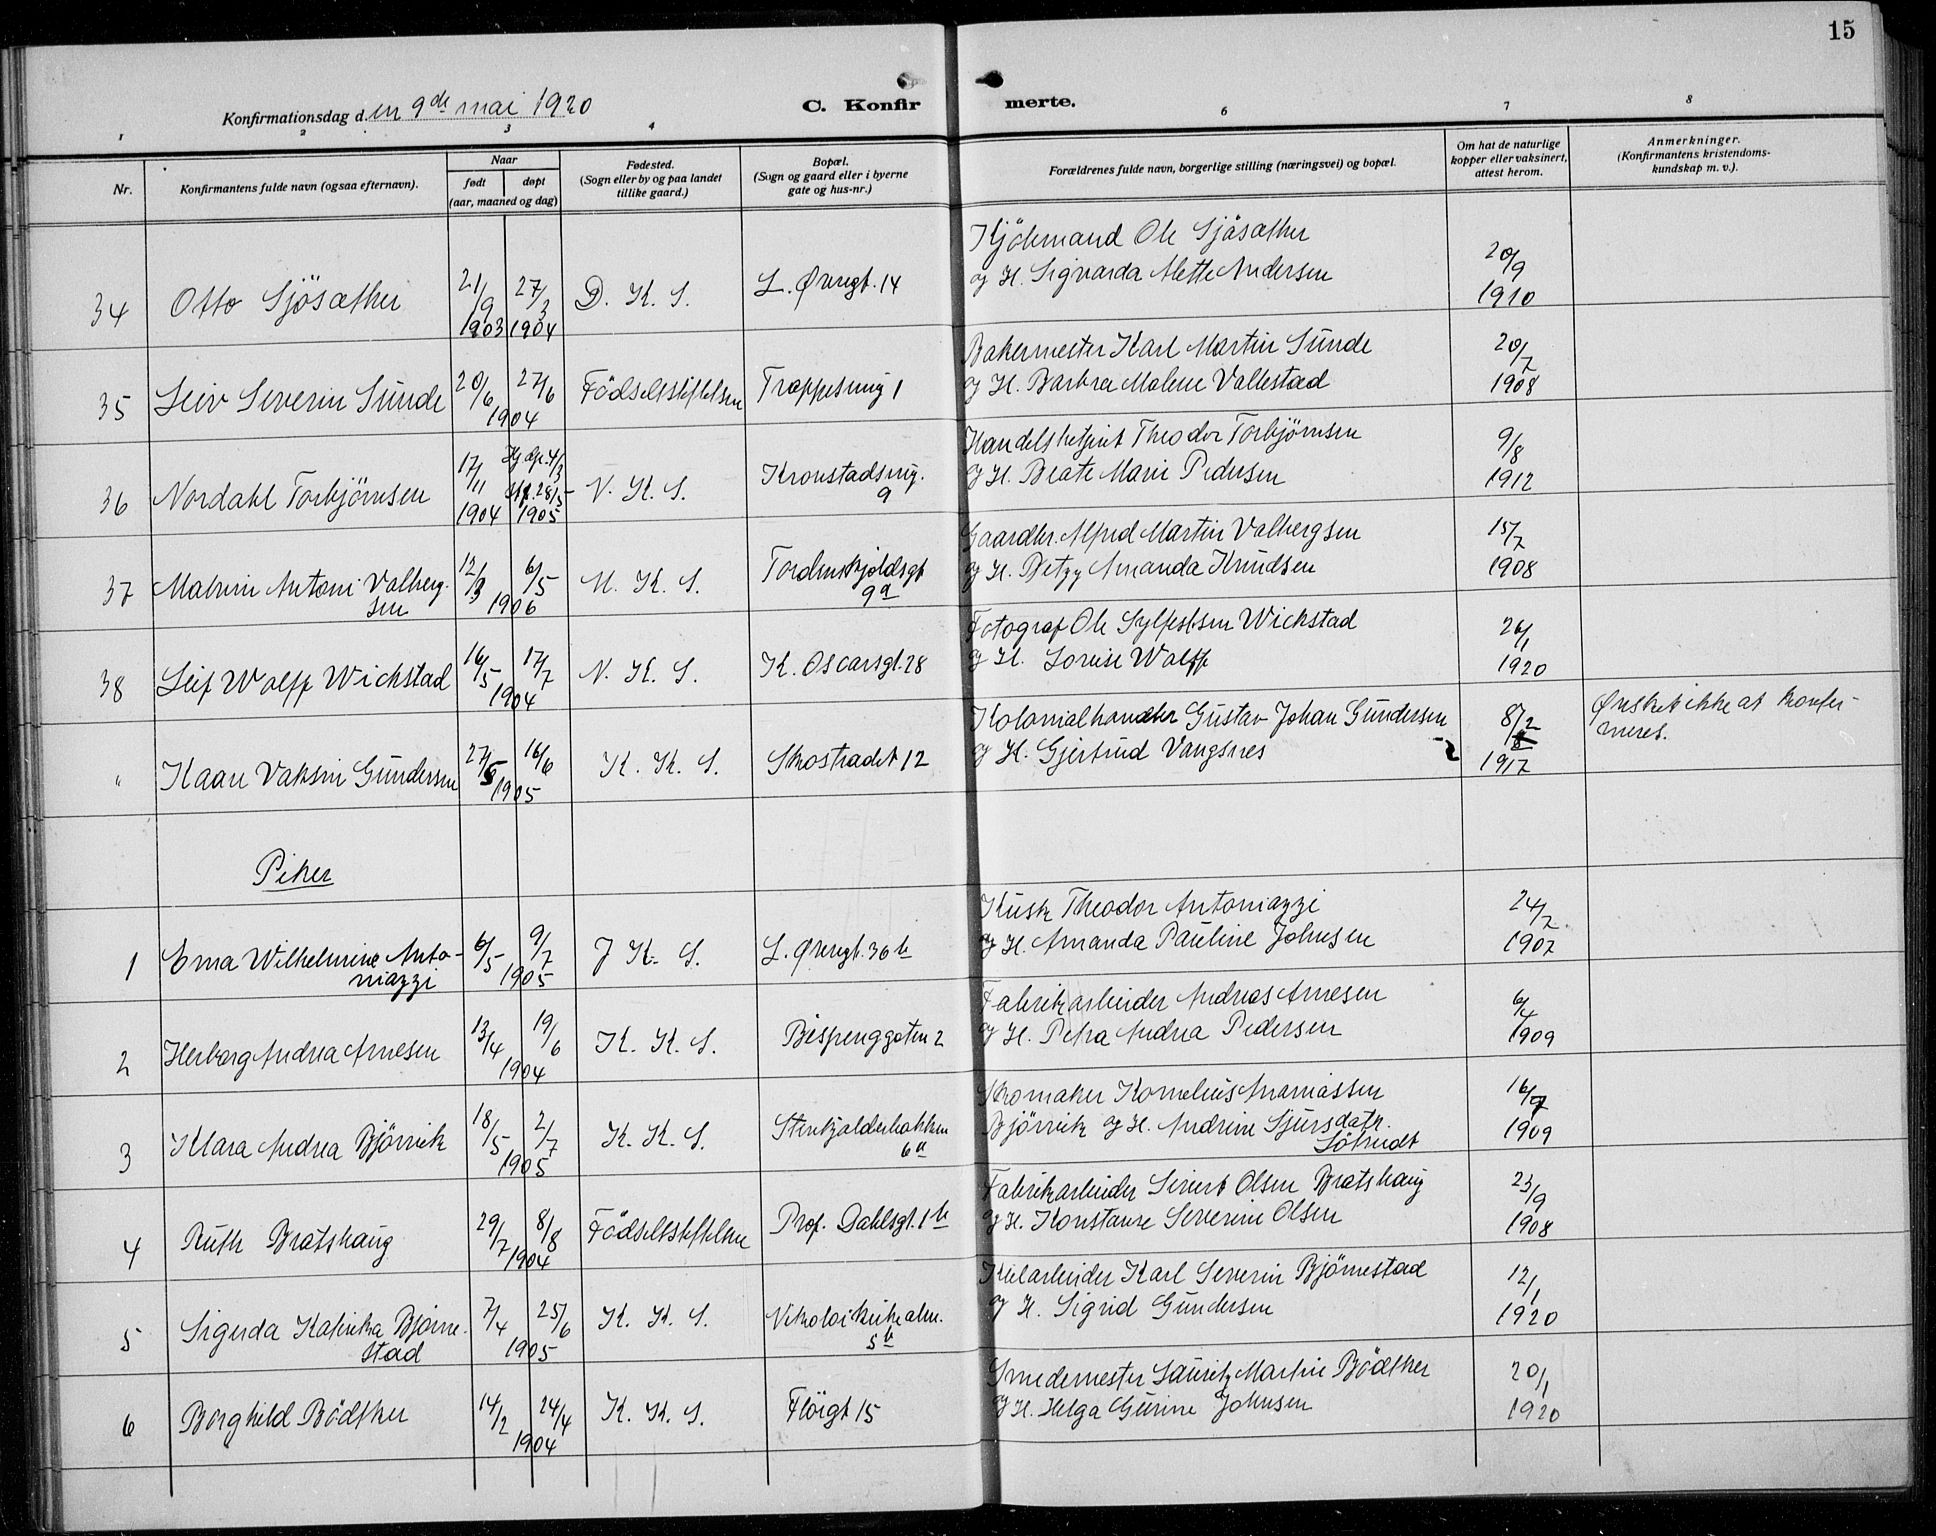 15
Konfirmationsdag den 9de mai 1920
C. Konfirmerte.
1 2 3 4 6 7 8
Nr.
Konfirmantens fulde navn (ogsaa efternavn).
Naar
født
døpt
(aar, maaned og dag)
Fødested.
(Sogn eller by og paa landet
tillike gaard.)
Bopæl.
(Sogn og gaard eller i byerne
gate og hus-nr.)
Forældrenes fulde navn, borgerlige stilling (næringsvei) og bopæl.
Om hat de naturlige
kopper eller vaksinert,
attest herom.
Anmerkninger.
(Konfirmantens kristendoms-
kundskap m. v.).
34 Otto Sjösæther 21/9 1903 27/3 1904 D. K. S. L. Øvregt. 14
Kjökemand Ole Sjösæther
og H. Sigvarda Mette Andersen
20/9 1910
35 Leiv Severin Sunde 20/6 27/6 1904 Födselsstiftelsen Trappesmug 1
Bakermester Karl Martin Sunde
og H. Barbra Malene Vallestad
20/7 1908
36 Nordahl Torbjörnsen 17/11 1904 Hj. dp. 4/3 Stf. 28/5 1905 N. K. S. Kronstadsvg. 9
Handelsbetjent Theodor Torbjörnsen
og H. Beate Marie Pedersen
9/8 1912
37 Malvin Antoni Valberg-
sen 12/3 6/5 1906 M. K. S. Tordenskjoldsgt 9a
Gaardbr. Alfred Martin Valbergsen
og H. Betzy Amanda Knudsen
15/7 1908
38 Leif Wolff Wickstad 16/5 17/7 1904 N. K. S. K. Oscarsgt. 28
Fotograf Ole Sylfestsen Wickstad
og H. Lovise Wolff
26/1 1920
" Haan Vaksin Gundersen 27/5 16/6 1905 K. K. S. Skostradet 12
Kolonialhandler Gustav Johan Gundersen
og H. Gjertrud Vangsnes
8/2 1917
Ønsket ikke at konfir-
meres.
Piker
1 Erna Wilhelmine Anto-
niazzi 6/5 9/7 1905 J. K. S. L. Øvregt. 36b
Kusk Theodor Antoniazzi
og H. Amanda Pauline Johnsen
24/7 1907
2 Herborg Andrea Arnesen 13/4 19/6 1904 K. K. S. Bispenggaten 2
Fabrikarbeider Andreas Arnesen
og H. Petra Andrea Pedersen
6/4 1909
3 Klara Andrea Björvik 18/5 2/7 1905 K. K. S. Stenkjelderbakken 6a
Skomaker Kornelius Ananiassen
Björvik og H. Andrine Sjursdatr.
16/7 1909
4 Ruth Bratshaug 29/7 8/8 1904 Födselsstiftelsen Prof. Dahlsgt. 1b
Fabrikarbeider Sivert Olsen Bratshaug
og H. Konstanse Severine Olsen
23/9 1908
5 Sigurda Katinka Björne-
stad 7/4 25/6 1905 K. K. S. Nikolaikirkealm. 5b
Karl Severin Björnestad
og H. Sigrid Gundersen
12/1 1920
6 Borghild Bödtker 14/2 24/4 1904 K. K. S. Flöigt 15
Smedemester Lauritz Martin Bödtker
og H. Helga Gurine Johnsen
20/1 1920